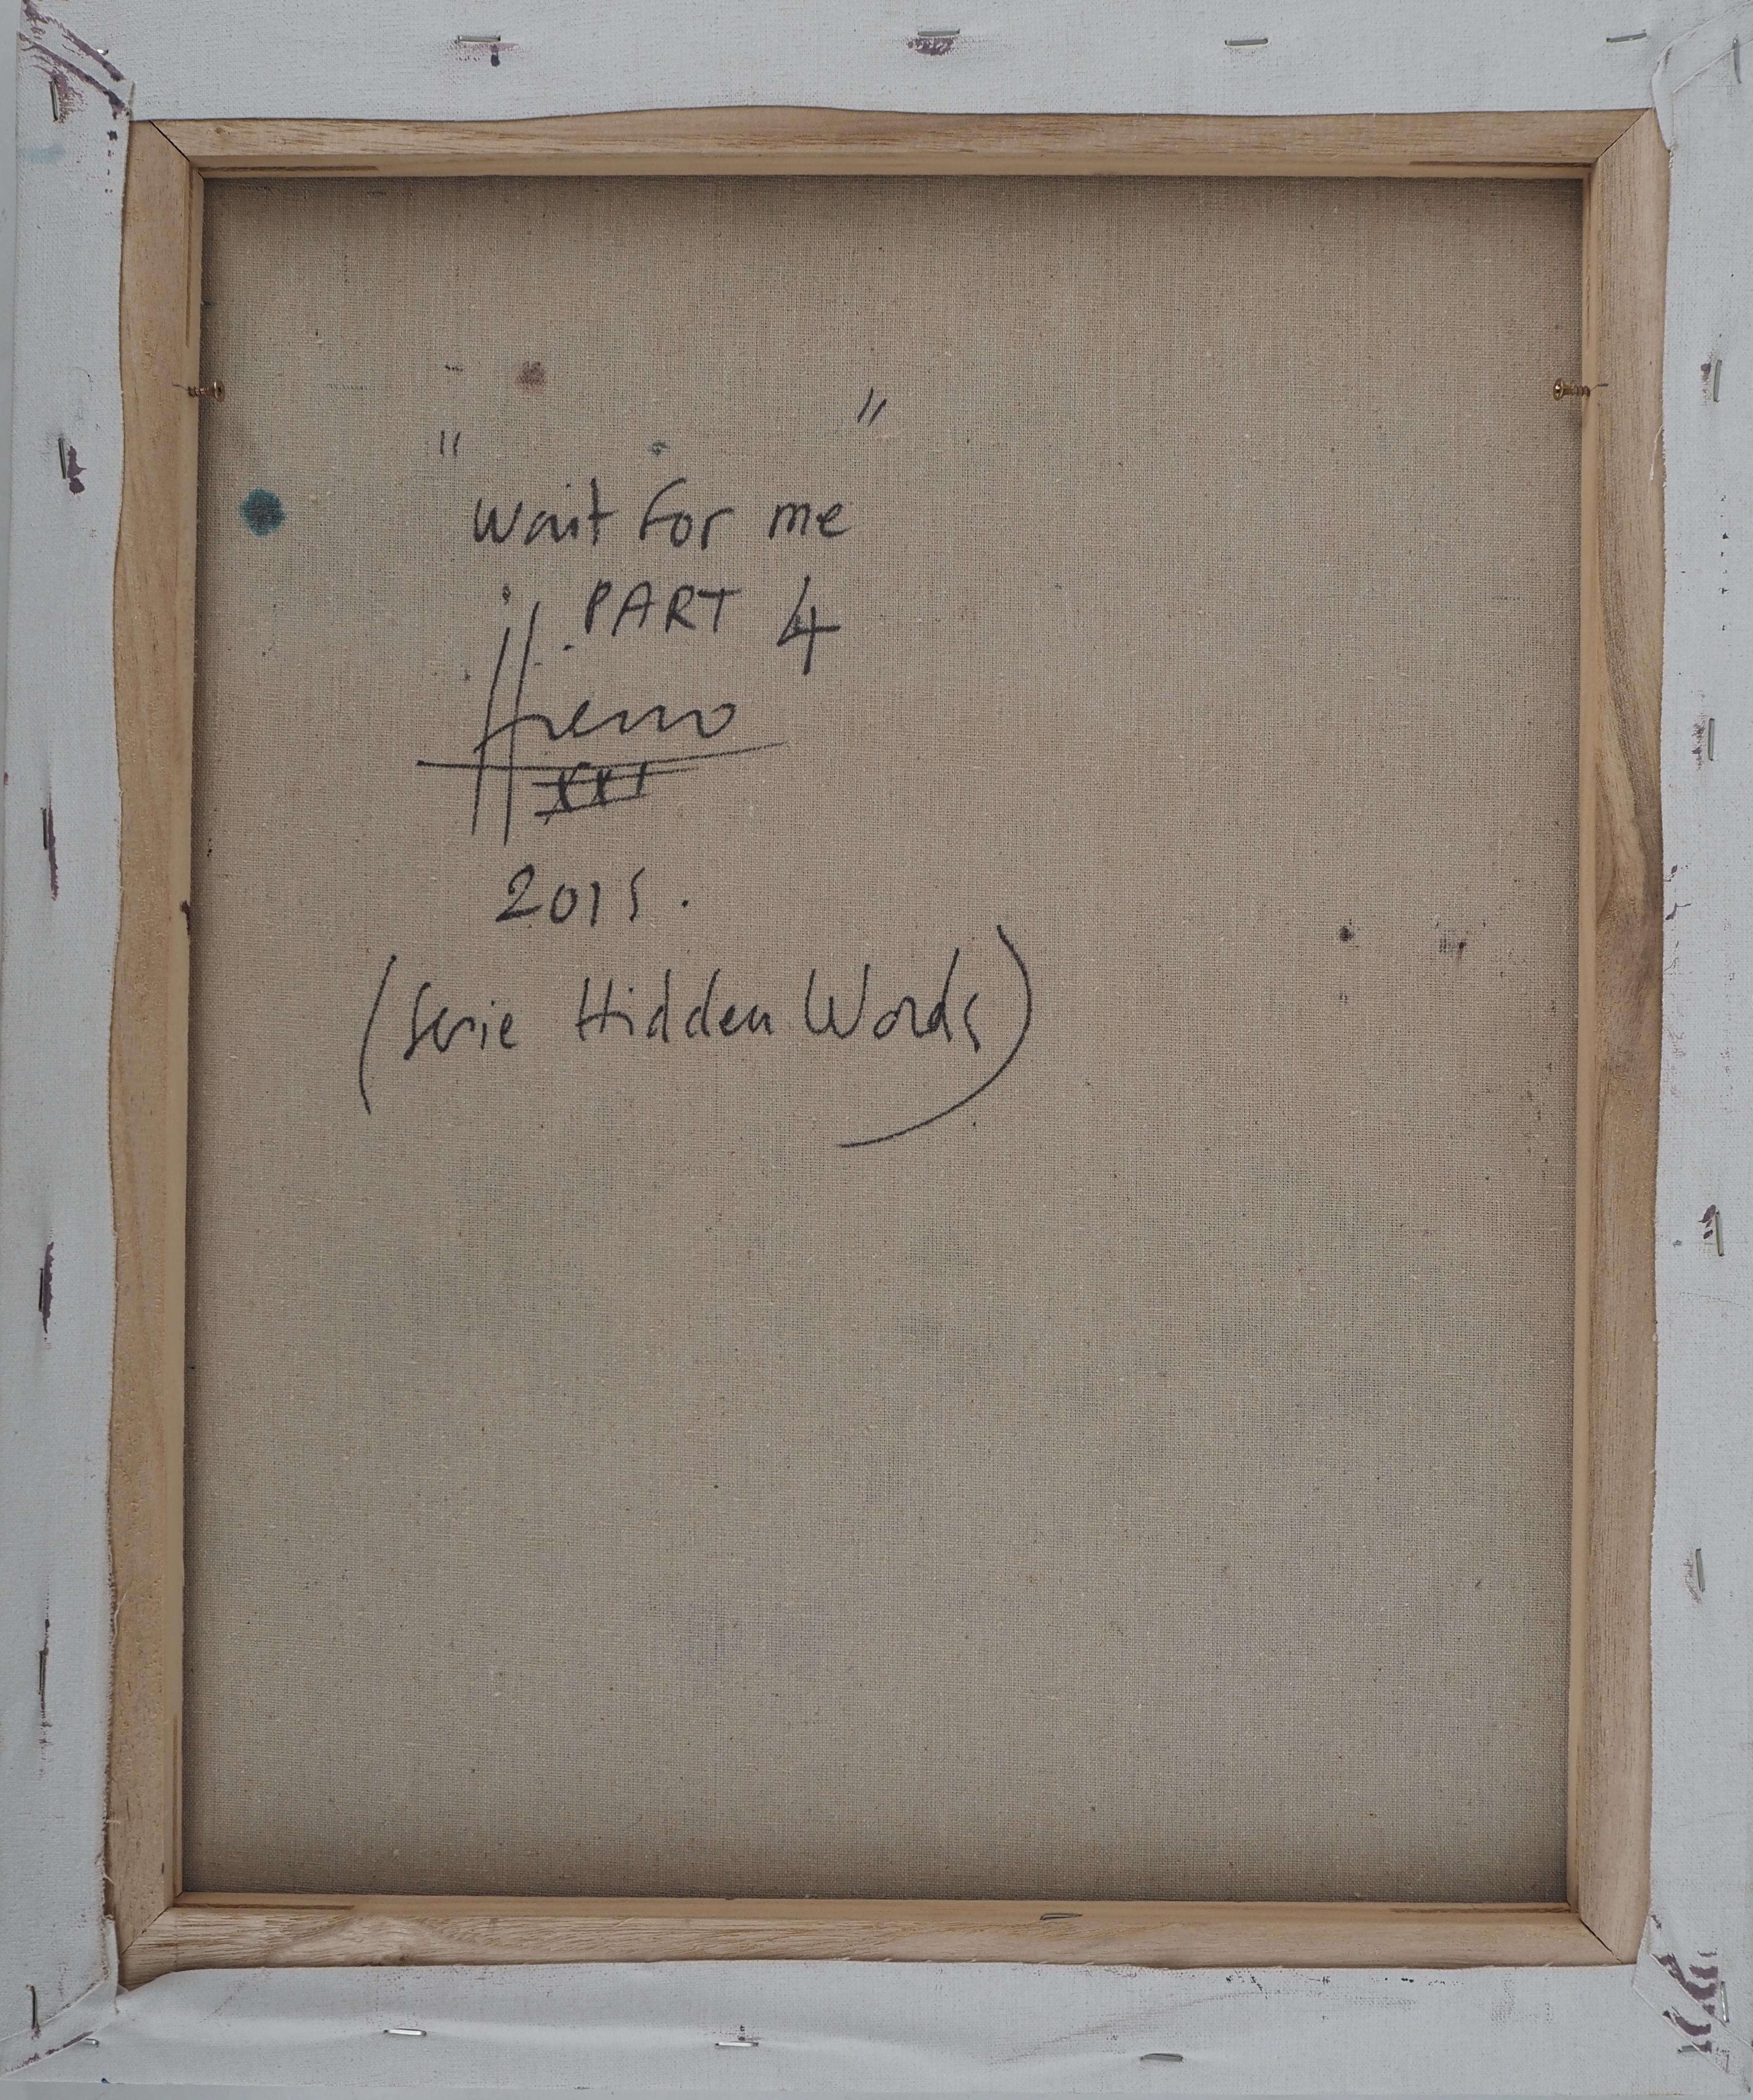 "wait for me"
PART 4
XXI
2015.
(Serie Hidden Words)